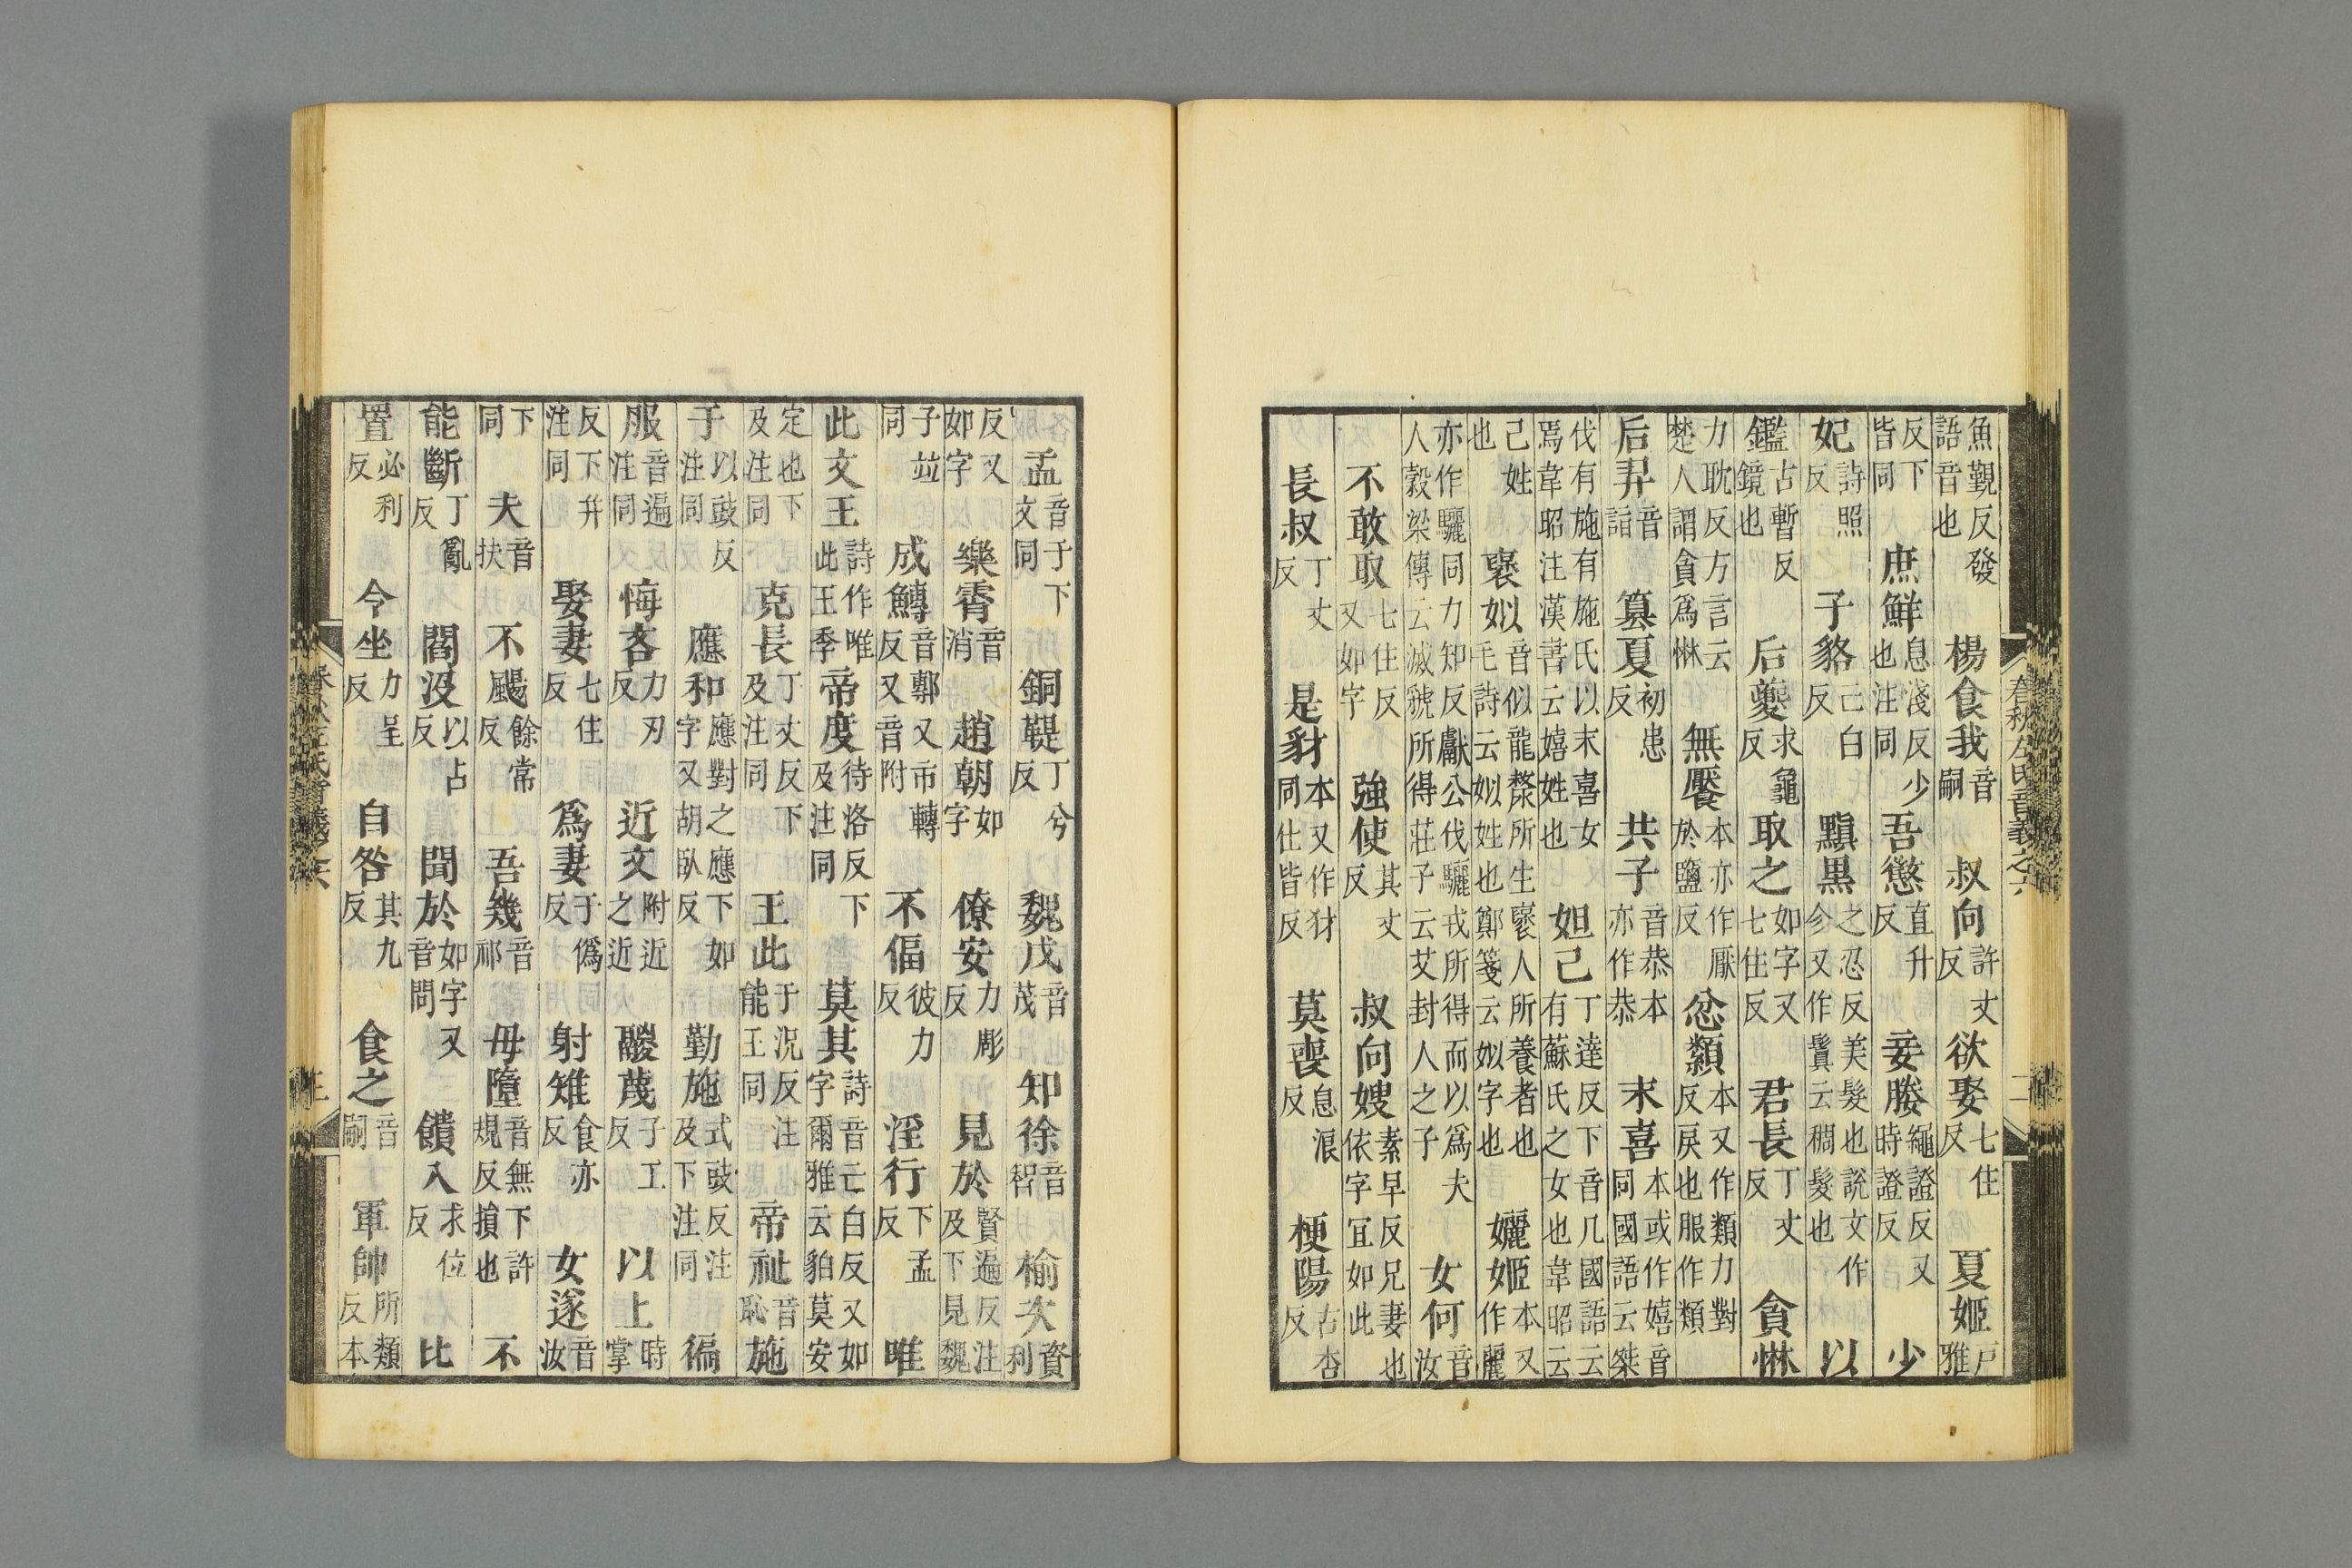 春秋左氏音義之六
魚覲反發語音也 楊食我音嗣 叔向許丈反 欲娶七住反 夏姬戶雅
反下皆同 庶鮮息淺反少也注同 吾懲直升反 妾媵繩證反又時證反 少
妃詩照反 子貉己白反 黰黒之忍反美髮也說文作㐱又作鬒云稠髮也 以
鑑古暫反鏡也 后夔求龜反 取之如字又七住反 君長丁丈反 貪惏
力耽反方言云楚人謂貪爲惏 無饜本亦作厭於鹽反 忿纇本又作類力對反戾也服作類
后羿音詣 篡夏初患反 共子音恭本亦作恭 末喜本或作嬉音同國語云桀
伐有施有施氏以末喜女焉韋昭注漢書云嬉姓也 妲己丁達反下音几國語云有蘇氏之女也韋昭云
己姓也 襃姒音似龍漦所生襃人所養者也毛詩云姒姓也鄭箋云姒字也 孋姬本又作麗
亦作驪同力知反獻公伐驪戎所得而以爲夫人穀梁傳云滅虢所得莊子云艾封人之子 女何音汝
不敢取七住反又如字 強使其丈反 叔向嫂素早反兄妻也依字宜如此
長叔丁丈反 是豺本又作犲同仕皆反 莫喪息浪反 梗陽古杏反
孟音于下文同 銅鞮丁兮反 魏戊音茂 知徐音智 榆次資利
反又如字 樂霄音消 趙朝如字 僚安力彫反 見於賢遍反注及下見魏
子竝同 成鱄音鄟又市轉反又音附 不偪彼力反 淫行下孟反 唯
此文王詩作唯此王季 帝度待洛反下及注同 莫其詩音亡白反又如字爾雅云貊莫安
定也下及注同 克長丁丈反下及注同 王此于況反注能王同 帝祉音恥 施
于以豉反注同 應和應對之應下如字又胡臥反 勤施式豉反注及下注同 徧
服音遍注同 悔吝力刃反 近文附近之近 鬷蔑子工反 以上時掌
反下幷注同 娶妻七住反 爲妻于僞反 射雉食亦反 女遂音汝
下同 夫音扶 不颺餘常反 吾幾音祁 毋墮音無下許規反損也 不
能斷丁亂反 閻沒以占反 聞於如字又音問 饋入求位反 比
置必利反 令坐力呈反 自咎其九反 食之音嗣 軍帥所類反本